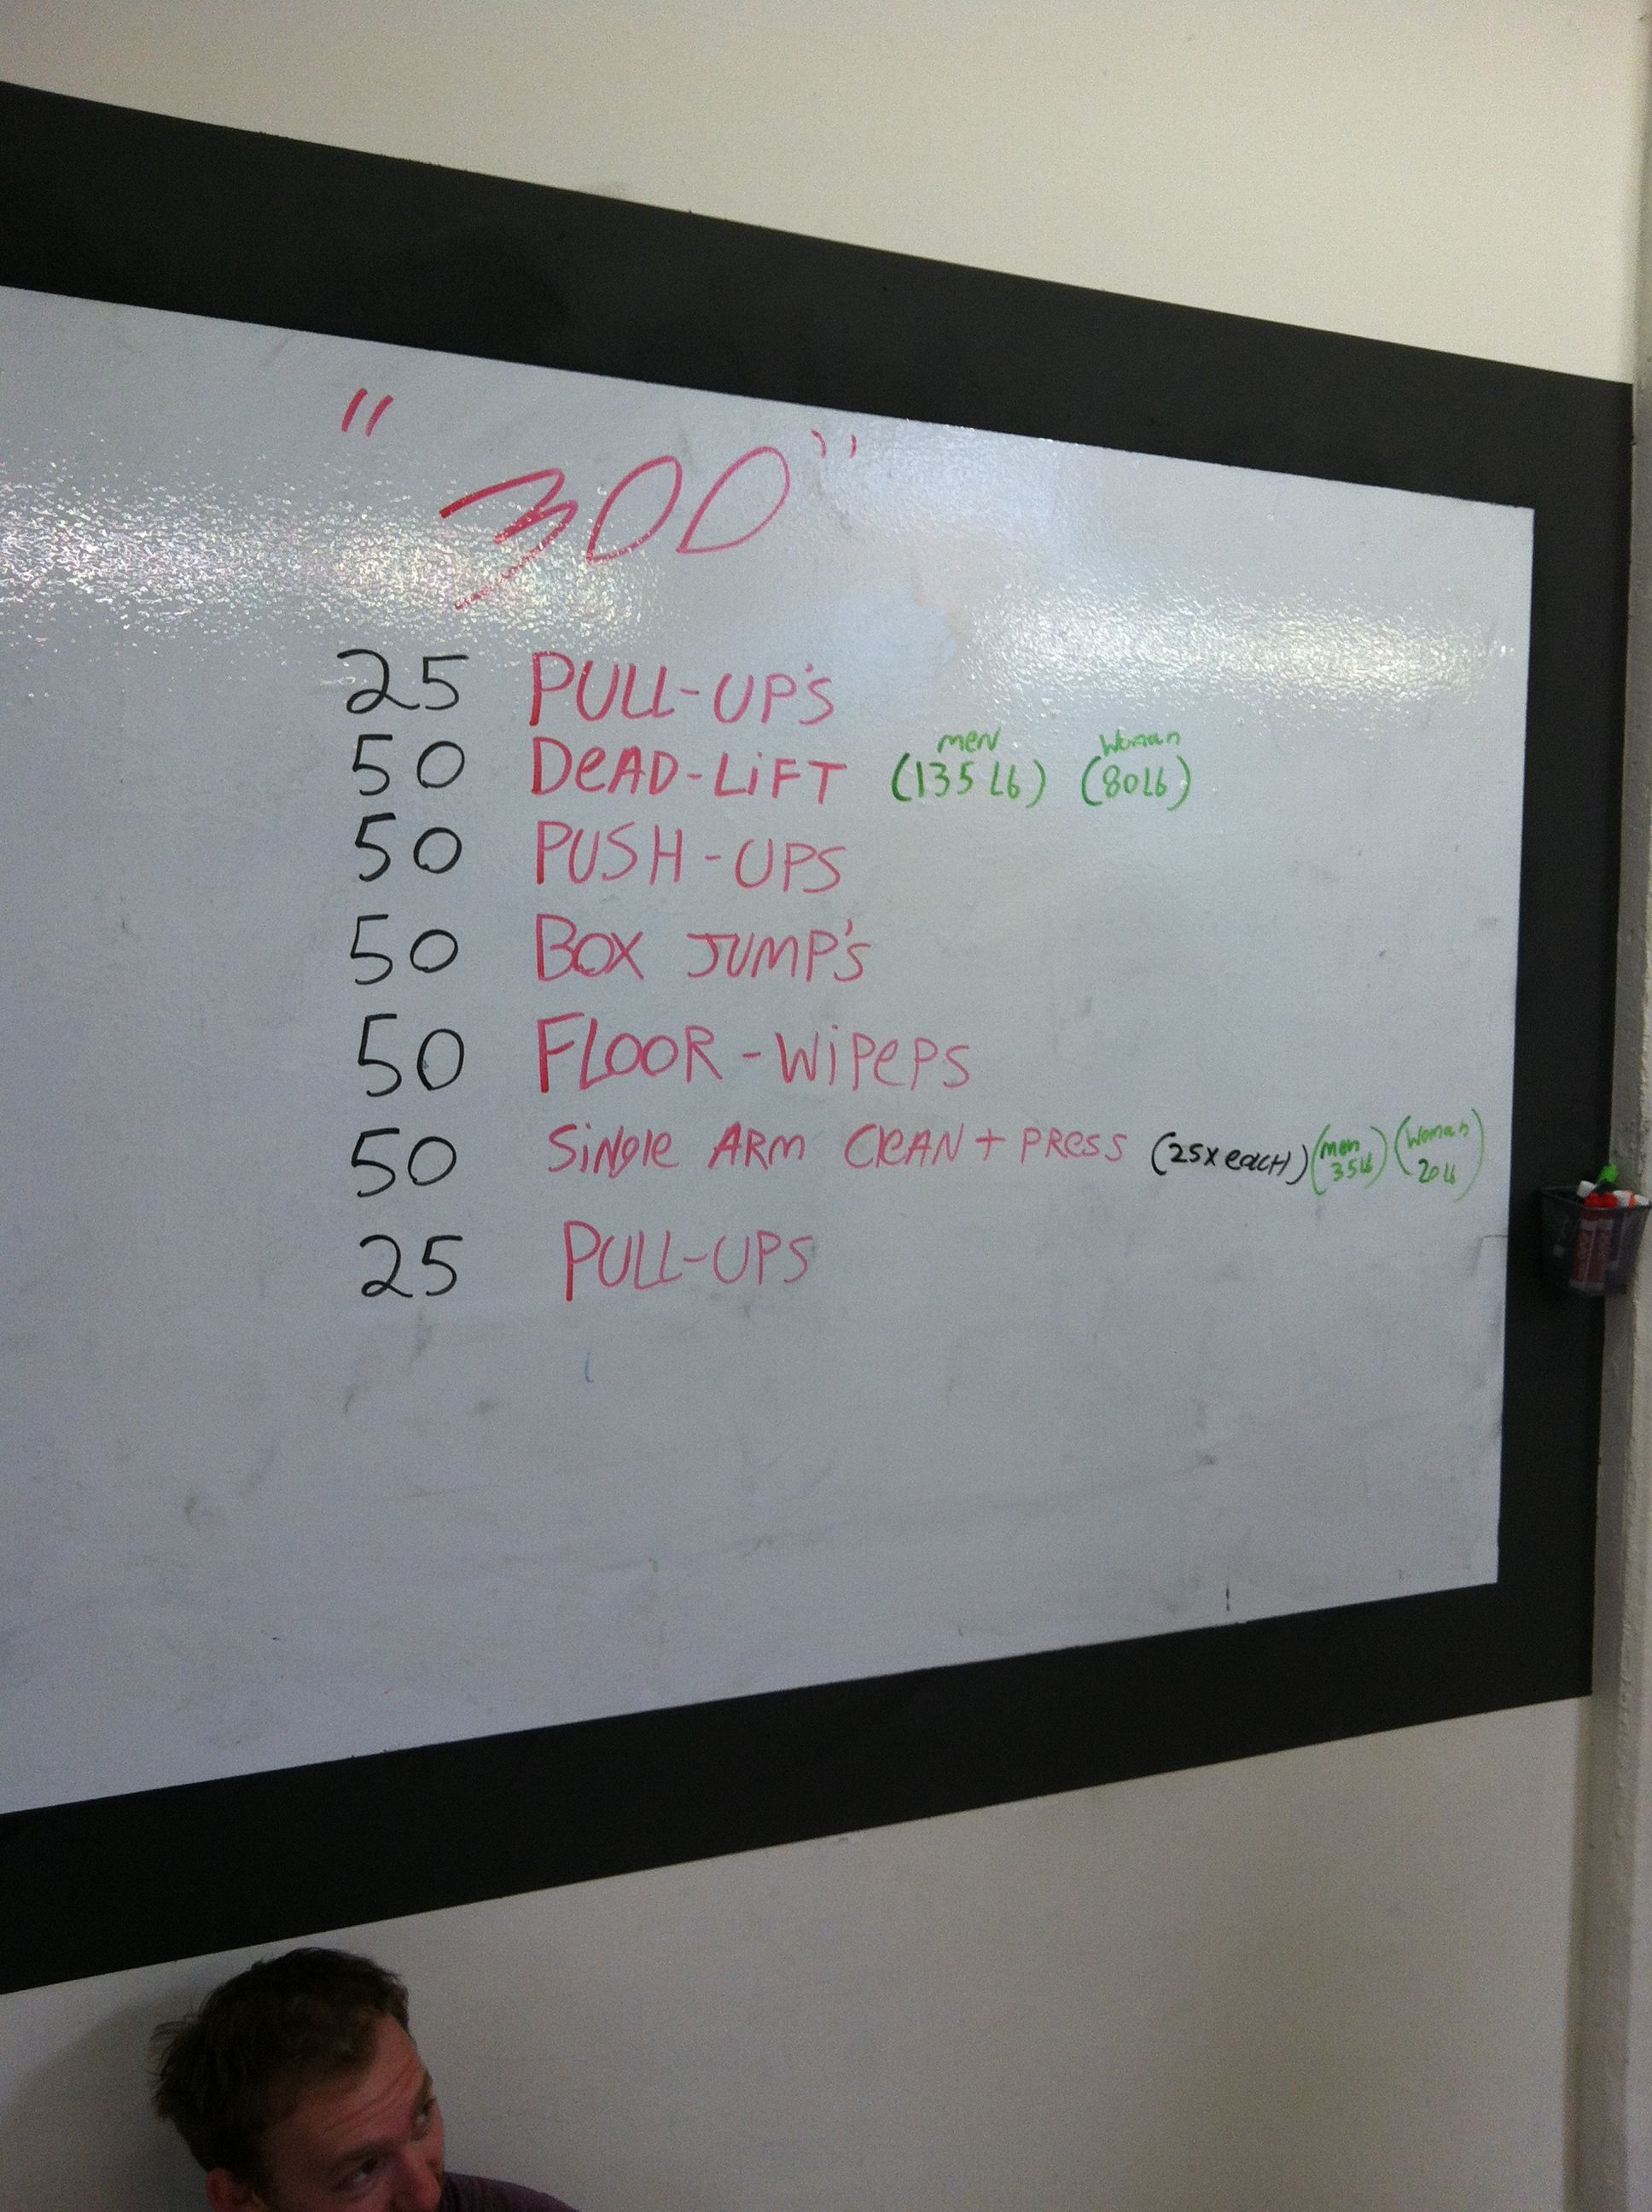 "300"
25 PULL-UP'S
50 DeAD-LiFT (135 Lb) men (80 Lb) Woman
50 PUSH-UPS
50 BOX JUMP'S
50 FLOOR-WiPePS
50 SiNgle ARm CleAN + PRess (25x eacH) (men 35 Lb) (Woman 20 Lb)
25 PULL-UPS